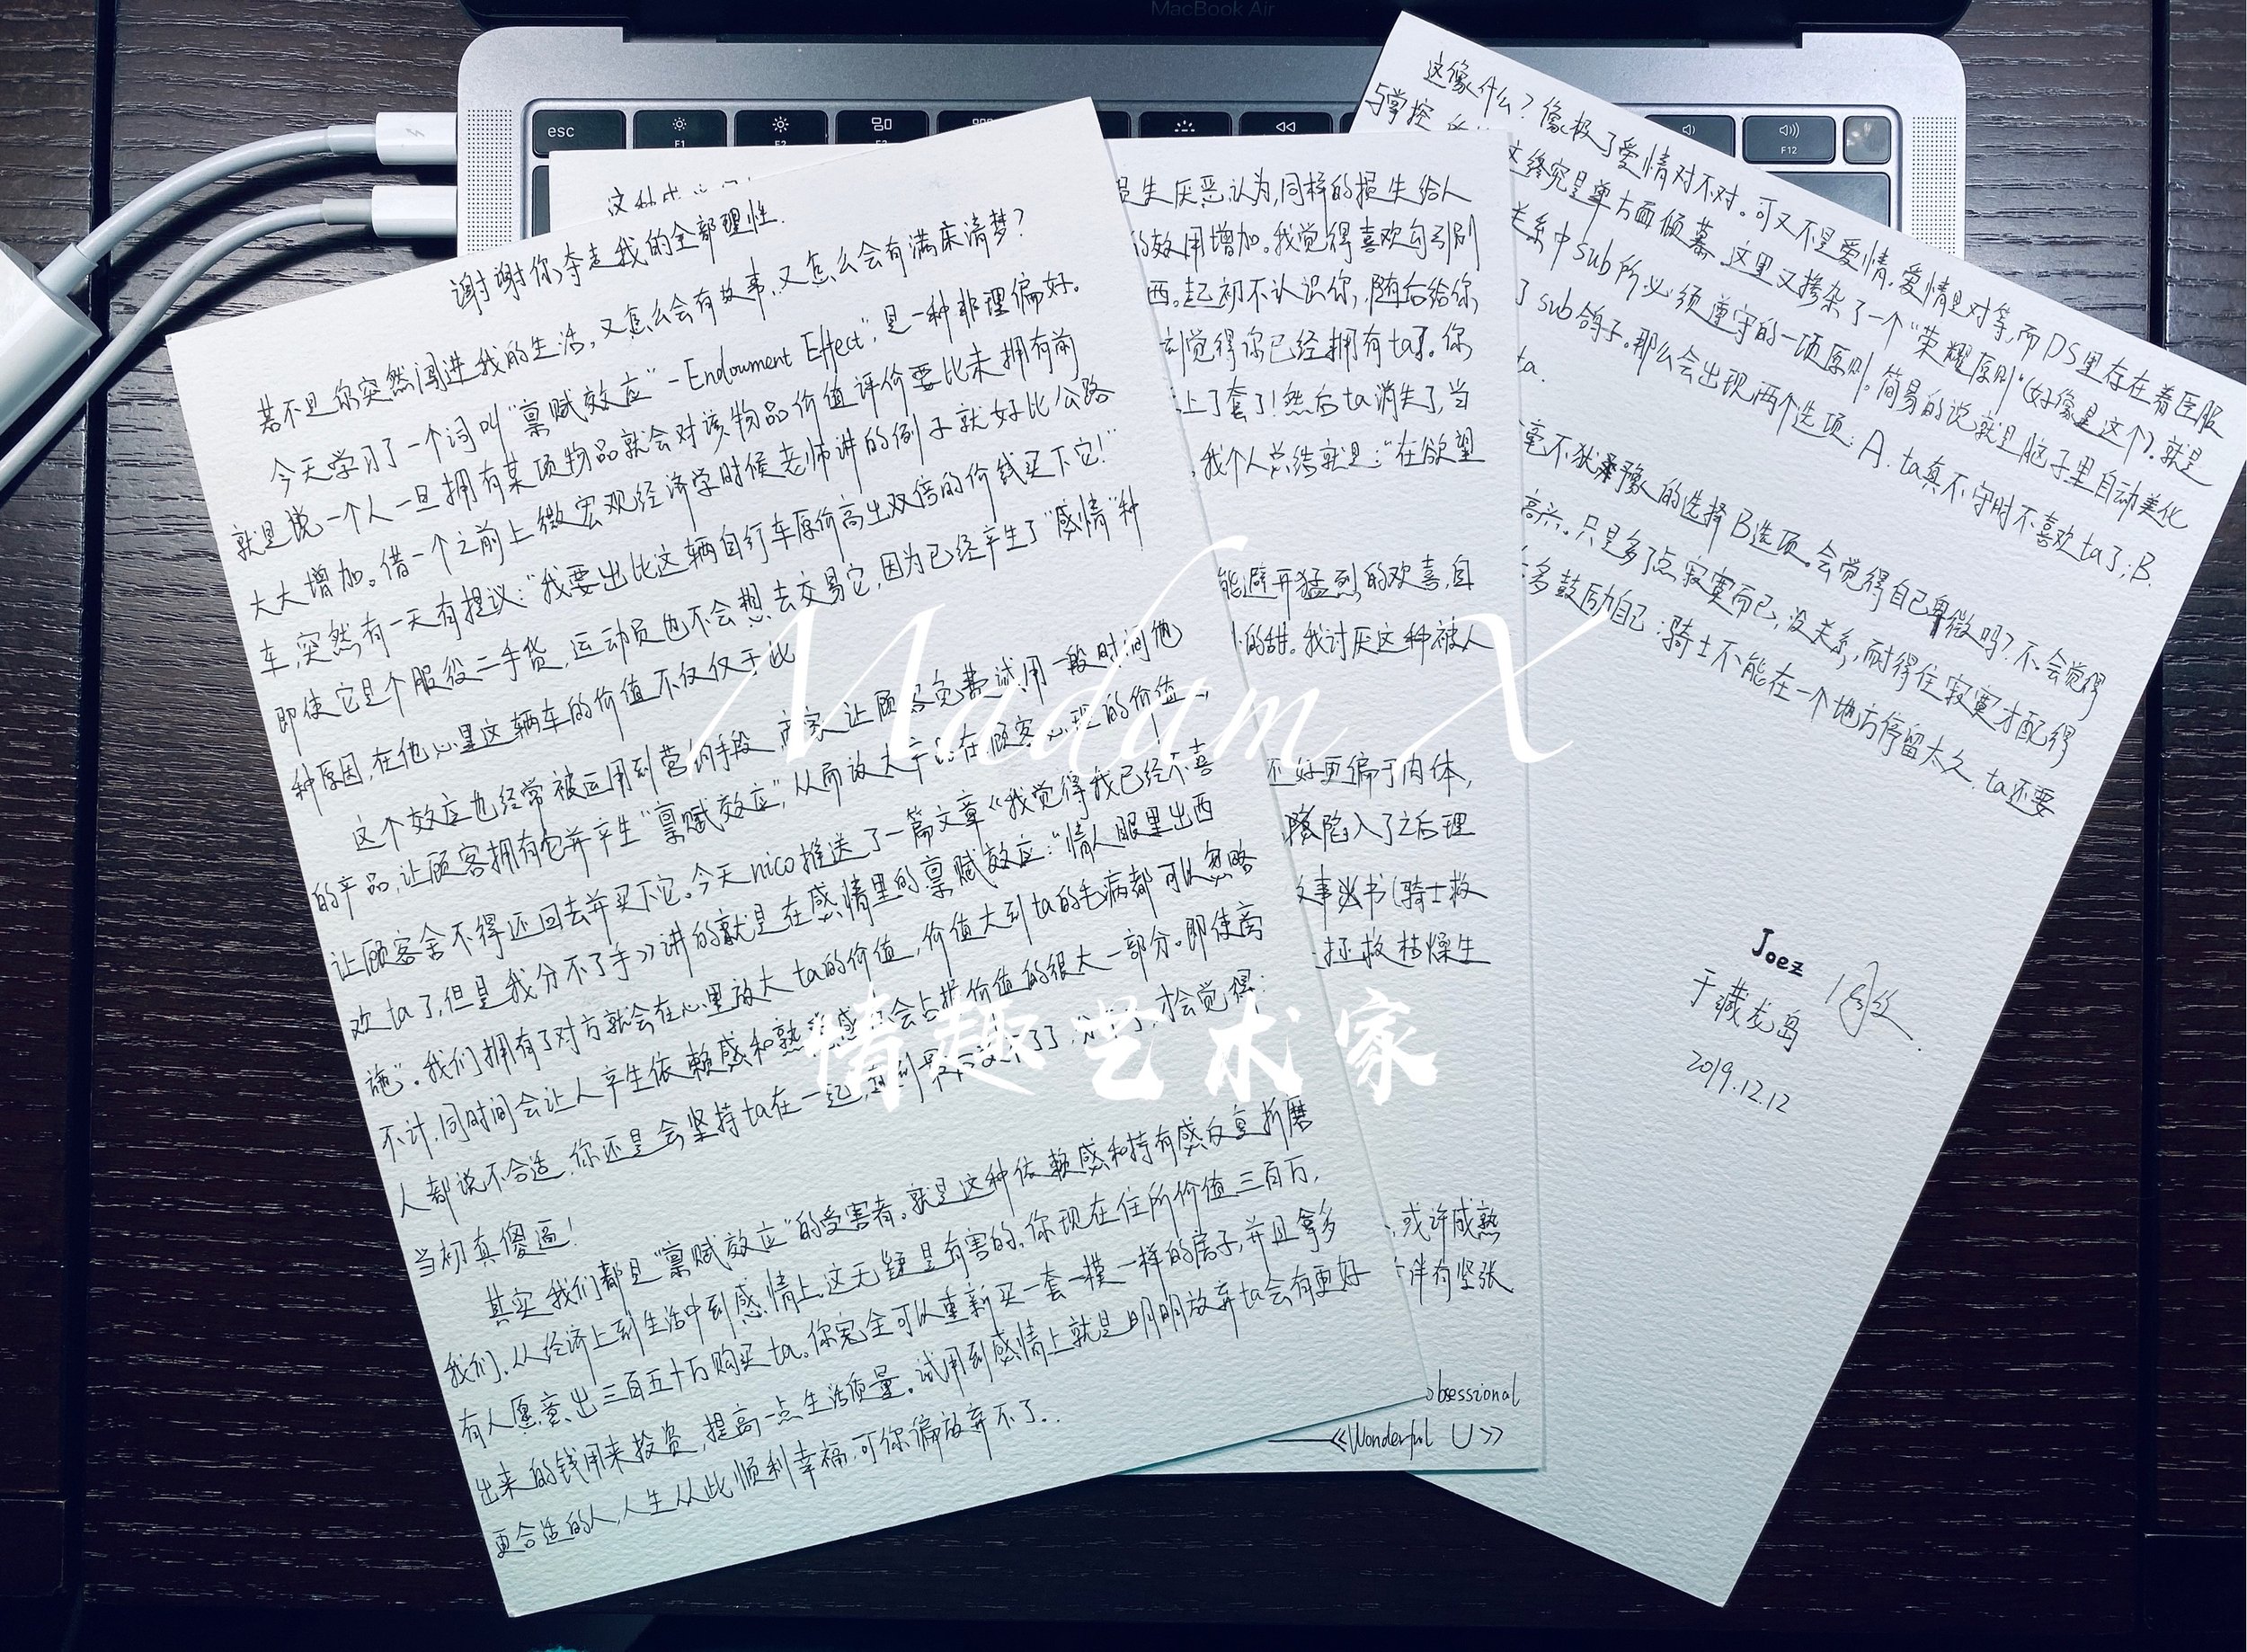 MacBook Air
esc
F1
F2
F12
谢谢你,夺走我的全部理性.
若不是你突然闯进我的生活,又怎么会有故事,又怎么会有满床清梦?
今天学习了一个词叫“禀赋效应”-Endowment Effect“,是一种非理偏好。
就是说一个人一旦拥有某项物品就会对该物品价值评价要比未拥有前
大大增加。借一个之前上微宏观经济学时候老师讲的例子就好比公路
车,突然有一天有提议:“我要出比这辆自行车原价高出双倍的价钱买下它!”
即使它是个服役二手货,运动员也不会想去交易它,因为已经产生了“感情”种
种原因,在他心里这辆车的价值不仅仅于此
这个效应也经常被运用到营销手段,商家让顾客免费试用一段时间他
的产品,让顾客拥有它并产生“禀赋效应”,从而放大产品在顾客心里的价值,
让顾客舍不得还回去并买下它。今天nico推送了一篇文章《我觉得我已经不喜
欢ta了,但是我分不了手》讲的就是在感情里的禀赋效应:“情人眼里出西
施”。我们拥有了对方就会在心里放大ta的价值,价值大到ta的毛病都可以忽略
不计,同时间会让人产生依赖感和熟悉感会占据价值的很大一部分。即使旁
人都说不合适,你还是会坚持ta在一起,直到最后受不了了,分手了,才会觉得:
当初真傻逼!
其实我们都是“禀赋效应”的受害者。就是这种依赖感和持有感反复折磨
我们,从经济上到生活中到感情上,这无疑是有害的,你现在住所价值三百万,
有人愿意出三百五十万购买ta。你完全可以重新买一套一模一样的房子,并且拿多
出来的钱用来投资,提高一点生活质量。试用到感情上就是明明放弃ta会有更好
更合适的人,人生从此顺利幸福,可你偏放弃不了..
损失厌恶,认为,同样的损失给人
的效用增加。我觉得喜欢勾引别
西,起初不认识你,随后给你
刻觉得你已经拥有ta了。你
上了套了!然后ta消失了,当
,我个人总结就是:“在欲望
能避开猛烈的欢喜,自
的甜。我讨厌这种被人
好更偏于肉体,
陷入了之后理
故事书(骑士救
拯救枯燥生
,或许成熟
伴有紧张
obsessional
——《Wonderful U》
这像什么?像极了爱情对不对。可又不是爱情。爱情是对等,而DS里存在着臣服
与掌控
这终究是单方面倾慕。这里又掺杂了一个“荣耀原则”(好像是这个?.就是
关系中sub所必须遵守的一项原则。简易的说就是脑子里自动美化
了sub鸽子。那么会出现两个选项:A.ta真不守时不喜欢ta了;B.
ta.
毫不犹豫的选择B选项。会觉得自己卑微吗?不会觉得
高兴。只是多了点寂寞而已,没关系,耐得住寂寞才配得
多鼓励自己:骑士不能在一个地方停留太久,ta还要
Joez
于藏龙岛
2019.12.12
Madam X
情趣艺术家